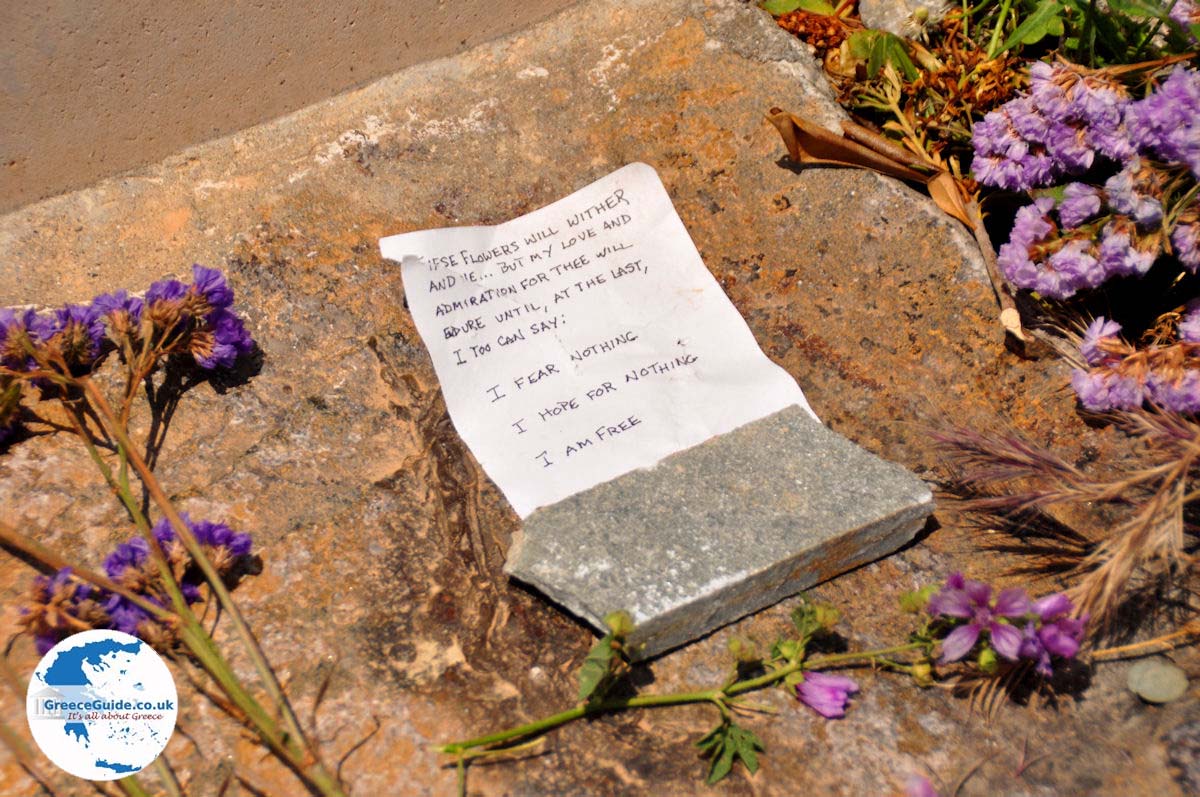 FLOWERS WILL WITHER
AND ... BUT MY LOVE AND
ADMIRATION FOR THEE WILL
EDURE UNTIL, AT THE LAST,
I TOO CAN SAY:
I FEAR NOTHING
I HOPE FOR NOTHING
I AM FREE
GreeceGuide.co.uk
It's all about Greece